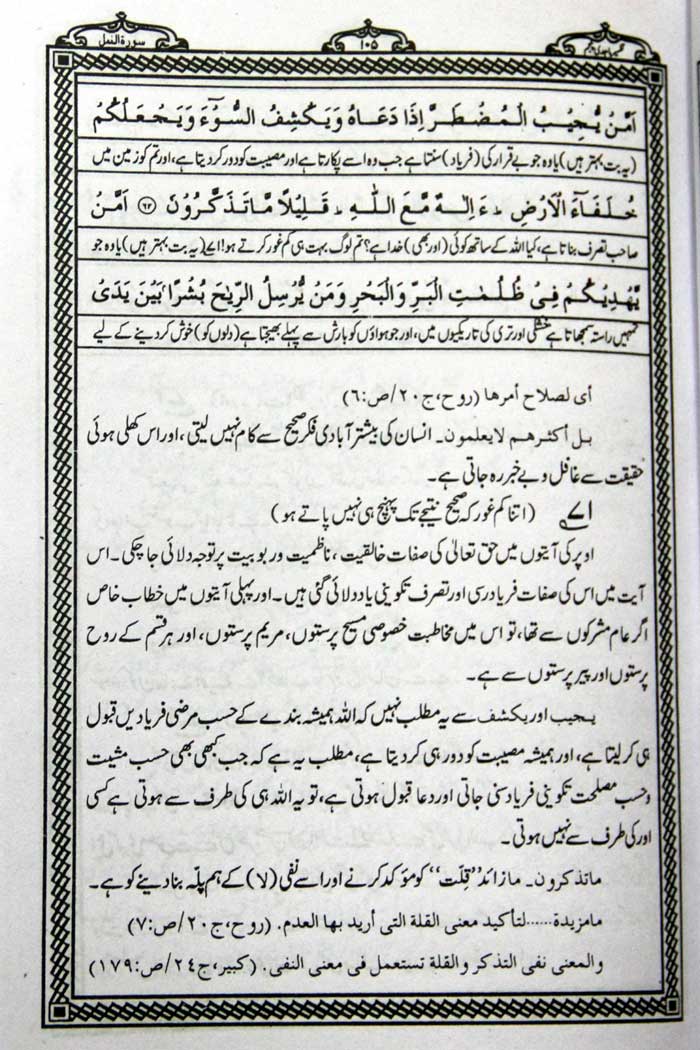 سورة النمل
۱۰۵
اَمَّنْ یُّجِیْبُ الْمُضْطَرَّ اِذَا دَعَاهُ وَیَکْشِفُ السُّوْٓءَ وَیَجْعَلُکُمْ
(یہ بت بہتر ہیں) یا وہ جو بے قرار کی (فریاد) سنتا ہے جب وہ اسے پکارتا ہے اور مصیبت کو دور کر دیتا ہے، اور تم کو زمین میں
خُلَفَآءَ الْاَرْضِ ۔ ءَاِلٰهٌ مَّعَ اللّٰهِ ۔ قَلِیْلًا مَّا تَذَکَّرُوْنَ (۶۲) اَمَّنْ
صاحب تصرف بناتا ہے، کیا اللہ کے ساتھ کوئی (اور بھی) خدا ہے؟ تم لوگ بہت ہی کم غور کرتے ہو! ۷۱ (یہ بت بہتر ہیں) یا وہ جو
یَّهْدِیْکُمْ فِیْ ظُلُمٰتِ الْبَرِّ وَالْبَحْرِ وَمَنْ یُّرْسِلُ الرِّیٰحَ بُشْرًا ۢ بَیْنَ یَدَیْ
تمہیں راستہ سجھاتا ہے خشکی اور تری کی تاریکیوں میں، اور جو ہواؤں کو بارش سے پہلے بھیجتا ہے (دلوں کو) خوش کر دینے کے لیے
أی لصلاح أمرها (روح، ج۲۰/ص:۶)
بل أکثرهم لایعلمون۔ انسان کی بیشتر آبادی فکر صحیح سے کام نہیں لیتی، اور اس کھلی ہوئی
حقیقت سے غافل و بے خبر رہ جاتی ہے۔
۷۱ (اتنا کم غور کہ صحیح نتیجے تک پہنچ ہی نہیں پاتے ہو)
اوپر کی آیتوں میں حق تعالیٰ کی صفات خالقیت، ناظمیت و ربوبیت پر توجہ دلائی جا چکی۔ اس
آیت میں اس کی صفات فریاد رسی اور تصرف تکوینی یاد دلائی گئی ہیں۔ اور پہلی آیتوں میں خطاب خاص
اگر عام مشرکوں سے تھا، تو اس میں مخاطبت خصوصی مسیح پرستوں، مریم پرستوں، اور ہر قسم کے روح
پرستوں اور پیر پرستوں سے ہے۔
یجیب اور یکشف سے یہ مطلب نہیں کہ اللہ ہمیشہ بندے کے حسب مرضی فریادیں قبول
ہی کر لیتا ہے، اور ہمیشہ مصیبت کو دور ہی کر دیتا ہے، مطلب یہ ہے کہ جب کبھی بھی حسب مشیت
و حسب مصلحت تکوینی فریاد سنی جاتی اور دعا قبول ہوتی ہے، تو یہ اللہ ہی کی طرف سے ہوتی ہے کسی
اور کی طرف سے نہیں ہوتی۔
ماتذکرون۔ ما زائد ”قلت“ کو مؤکد کرنے اور اسے نفی (لا) کے ہم پلّہ بنا دینے کو ہے۔
مامزیدة......لتأکید معنی القلة التی أرید بها العدم. (روح، ج۲۰/ص:۷)
والمعنی نفی التذکر والقلة تستعمل فی معنی النفی. (کبیر، ج۲۴/ص:۱۷۹)